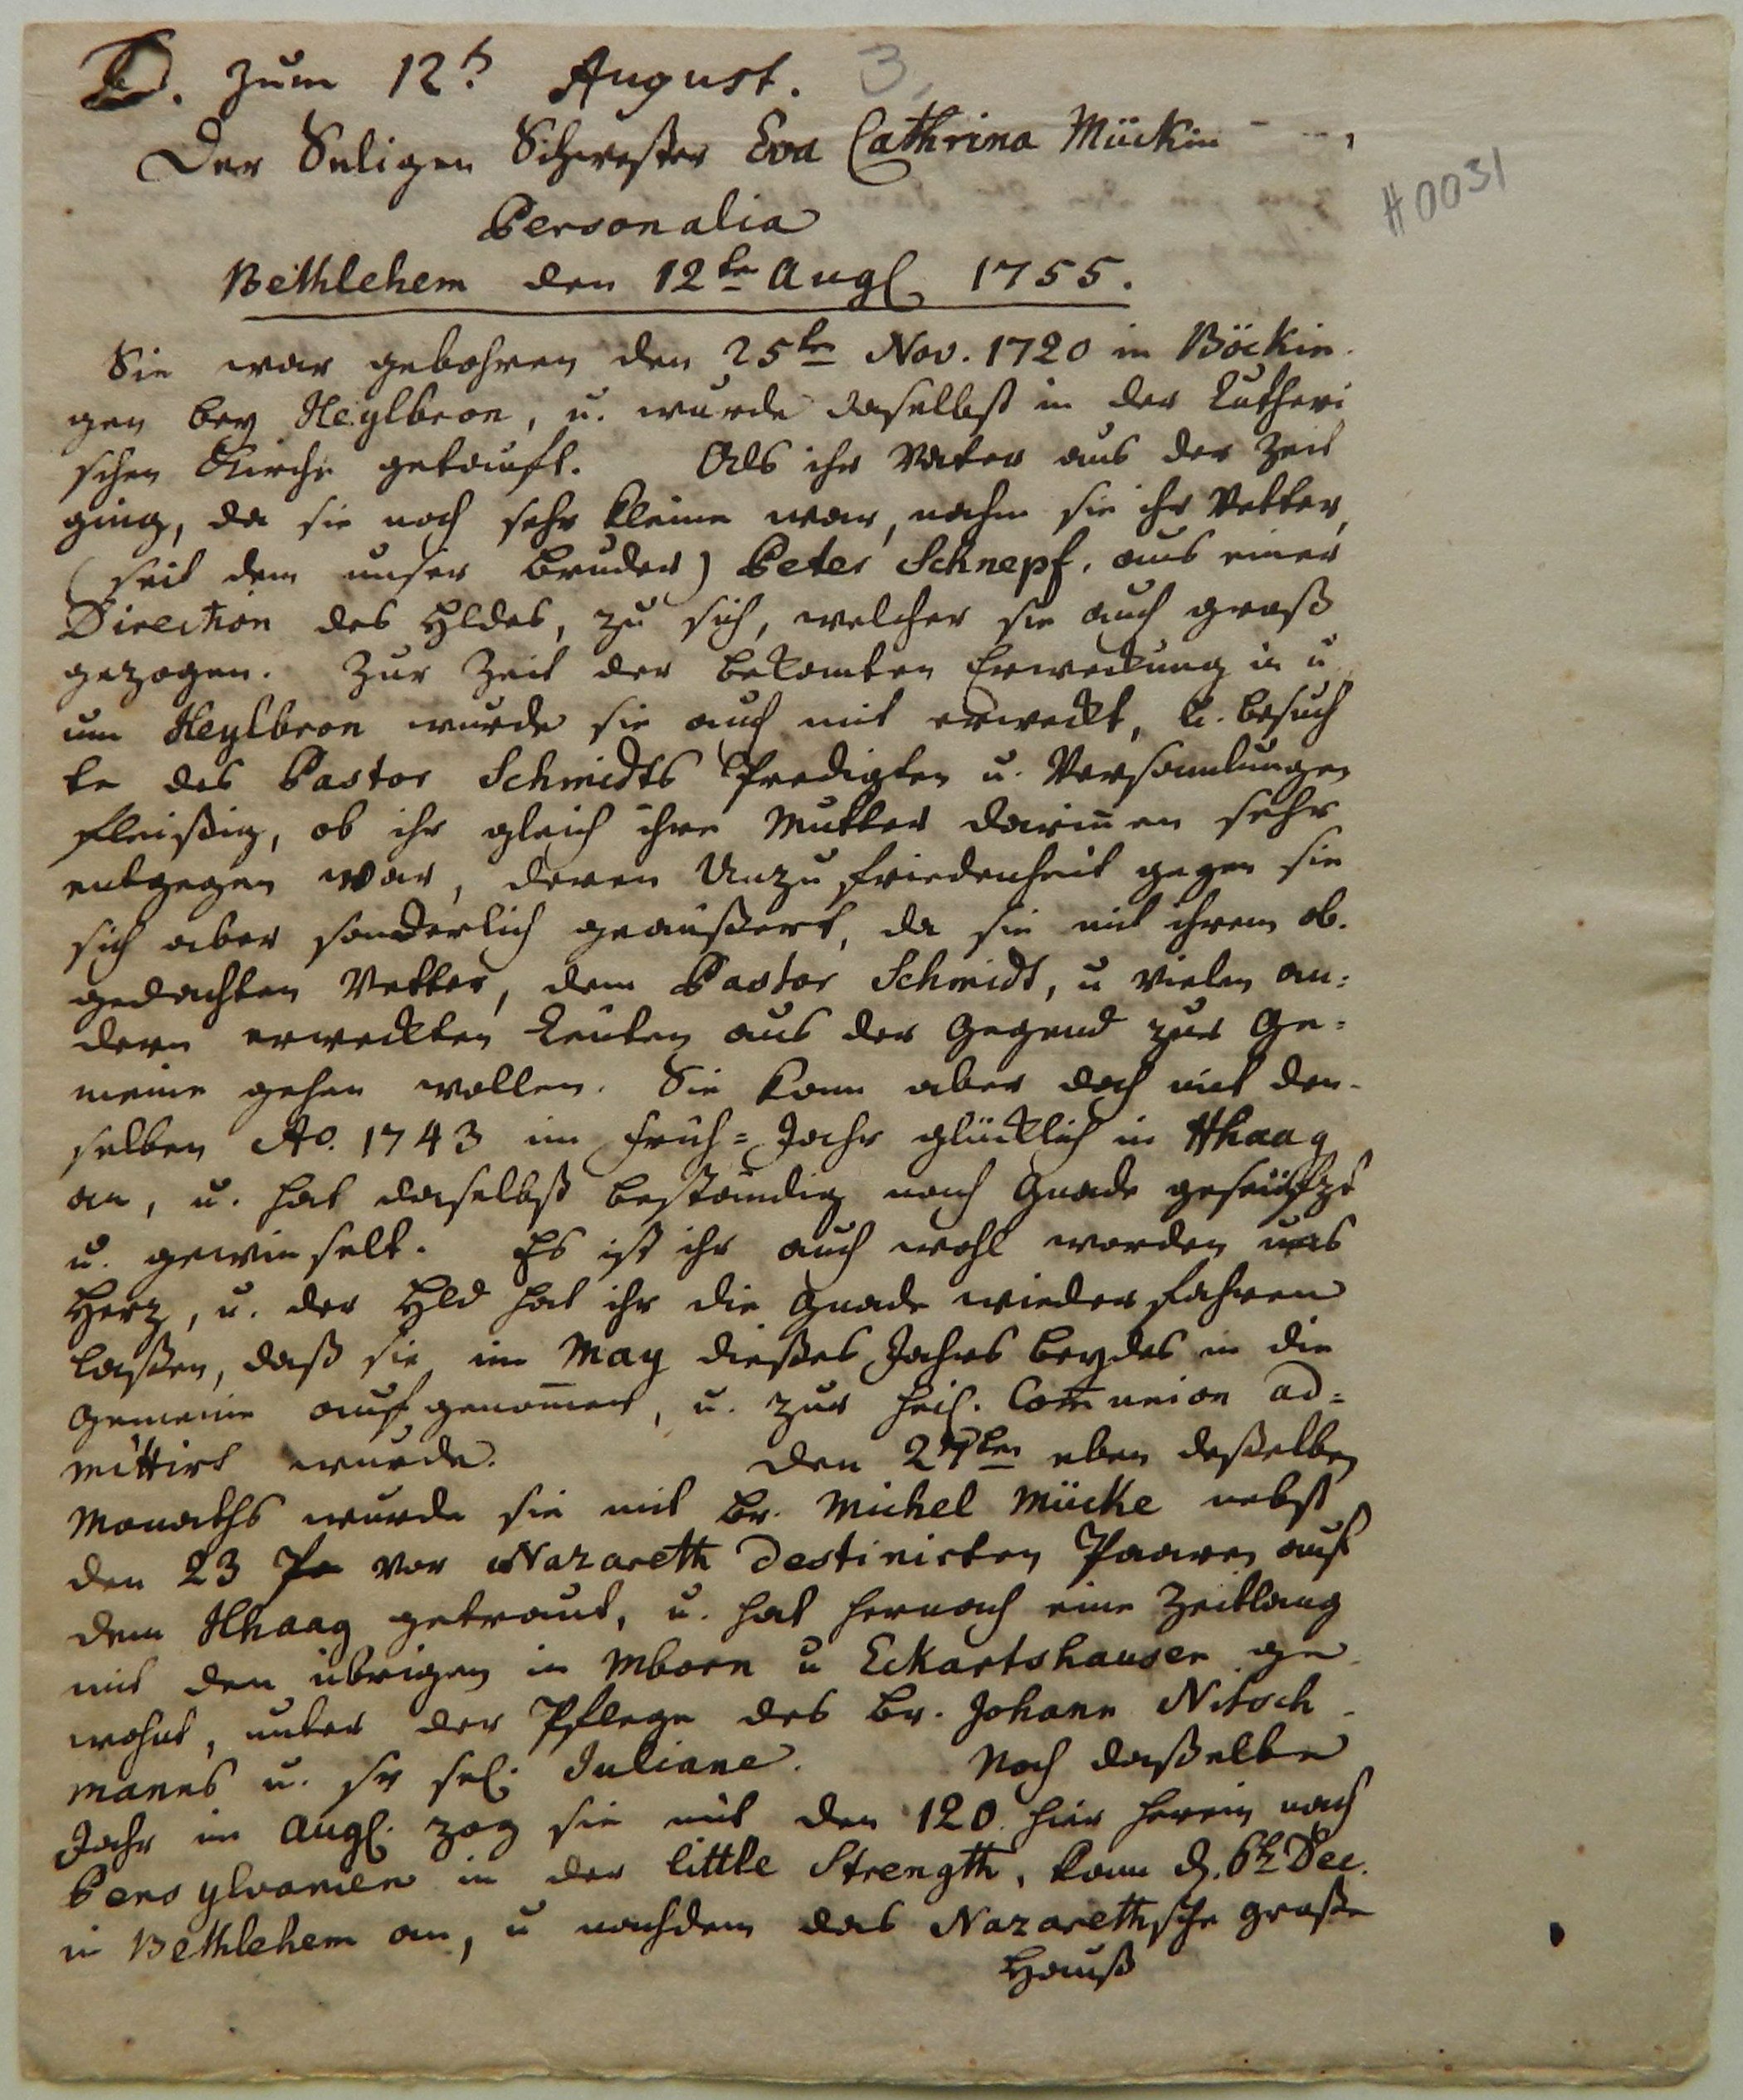 D. Zum 12t August. 3.
Der Seligen Schwester Eva Cathrina Mückin
#0031
Personalia
Bethlehem den 12ten Augs 1755.
Sie war gebohren den 25ten Nov. 1720 in Böckin-
gen bey Heylbron, u. wurde daselbst in der Lutheri
schen Kirche getauft. Als ihr Vater aus der Zeit
ging, da sie noch sehr kleine war, nahm sie ihr Vetter,
(seit dem unser Bruder) Peter Schnepf, aus einer
Direction des Hldes, zu sich, welcher sie auch groß
gezogen. Zur Zeit der bekanten Erweckung in u
um Heylbron wurde sie auch mit erweckt, u. besuch
te des Pastor Schmidts Predigten u. Versamlungen
fleißig, ob ihr gleich ihre Mutter darin̄en sehr
entgegen war, deren Unzufriedenheit gegen sie
sich aber sonderlich geäußert, da sie mit ihrem ob-
gedachten Vetter, dem Pastor Schmidt, u vielen an=
dern erweckten Leuten aus der Gegend zur Ge=
meine gehen wollen. Sie kam aber doch mit den-
selben Ao. 1743 im Früh=Jahr glücklich in Hhaag
an, u. hat daselbst beständig nach Gnade geseüfzt
u. gewinselt. Es ist ihr auch wohl worden ums
Herz, u. der Hld hat ihr die Gnade wiederfahren
laßen, daß sie im May dießes Jahrs beydes in die
Gemeine aufgenom̄en, u. zur heil. Com̄union ad=
mittirt wurde. Den 27ten eben deßelben
Monaths wurde sie mit Br. Michel Mücke nebst
den 23 Pa vor Nazareth destinirten Paaren auf
dem Hhaag getraut, u. hat hernach eine Zeitlang
mit den übrigen in Mborn u Eckartshausen ge-
wohnt, unter der Pflege des Br. Johann Nitsch-
manns u. sr sel. Juliane. Noch daßelbe
Jahr im Augs. zog sie mit den 120. hier herein nach
Pensylvanien in der little Strength, kam d. 6t Dec.
in Bethlehem an, u nachdem das Nazarethsche große
Hauß